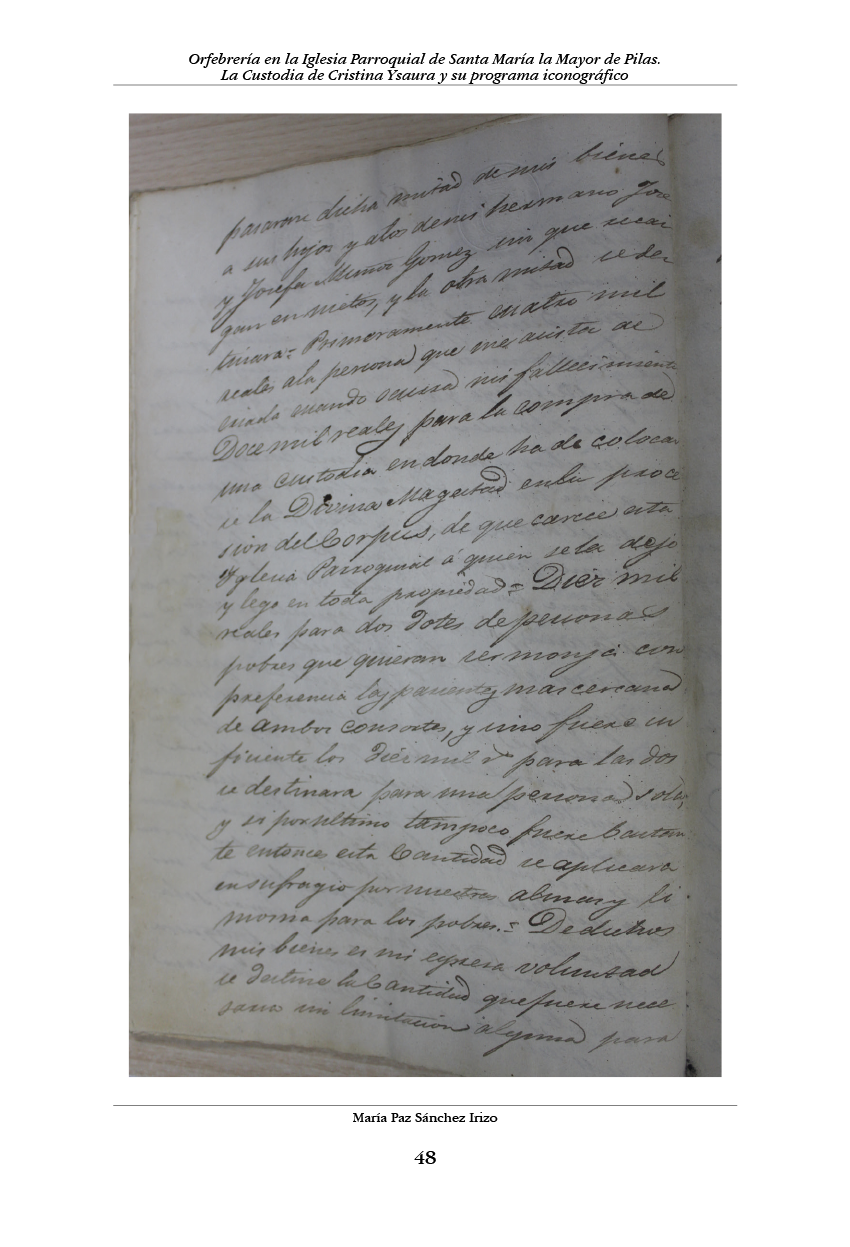 Orfebrería en la Iglesia Parroquial de Santa María la Mayor de Pilas.
La Custodia de Cristina Ysaura y su programa iconográfico
pasaran dicha mitad de mis bienes
a sus hijos y a los de mis hermanos Jose
y Josefa Muñoz Gomez sin que recai
gan en nietos, y la otra mitad se des
tinara = Primeramente cuatro mil
reales ala persona que me asista de
criada cuando ocurra mi fallecimiento
Doce mil reales para la compra de
una custodia en donde ha de colocar
se la Divina Magestad en la proce
sion del Corpus, de que carece esta
Yglesia Parroquial á quien se la dejo
y lego en toda propiedad = Diez mil
reales para dos dotes de personas
pobres que quieran ser monjas con
preferencia las parientas mas cercanas
de ambos consortes, y sino fuere su
ficiente los Diez mil rs para las dos
se destinara para una persona sola,
y si por ultimo tampoco fuere bastan
te entonces esta Cantidad se aplicara
en sufragio por nuestras almas y li
mosna para los pobres. = De dichos
mis bienes es mi espresa voluntad
se destine la Cantidad que fuere nece
saria sin limitacion alguna para
María Paz Sánchez Irizo
48